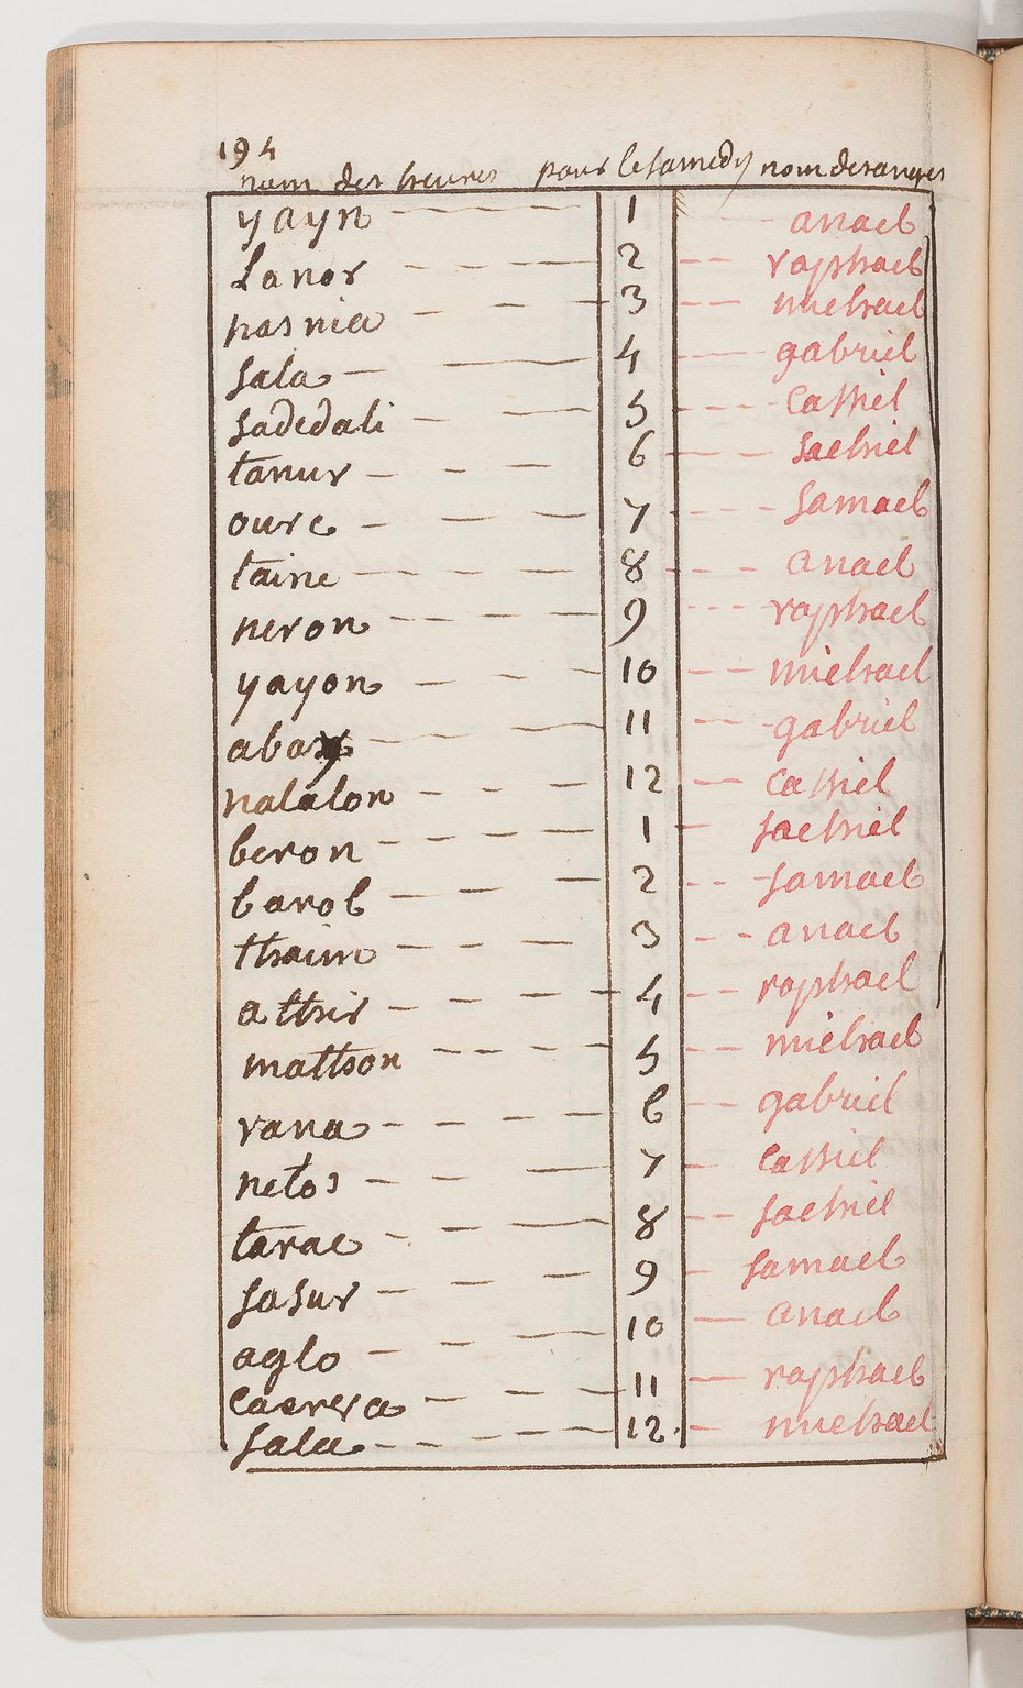 194
nom des heures pour le samedy nom des anges
yayn 1 anael
Lanor 2 raphael
nasnia 3 michael
sala 4 gabriel
sadedali 5 Cassiel
tanur 6 sachiel
oure 7 samael
taine 8 anael
neron 9 raphael
yayon 10 michael
abay 11 gabriel
nalalon 12 Cassiel
beron 1 sachiel
barol 2 samael
thaim 3 anael
athir 4 raphael
mathon 5 michael
rana 6 gabriel
netos 7 Cassiel
tarac 8 sachiel
sasur 9 samael
aglo 10 anael
Caerra 11 raphael
sala 12 michael